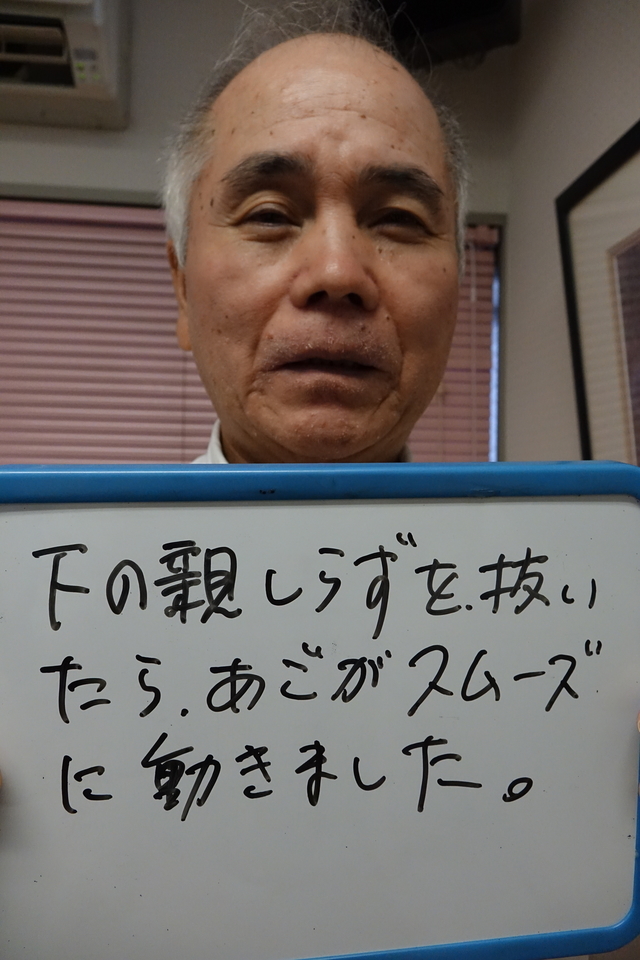 下の親しらずを、抜い
たら、あごがスムーズ
に動きました。